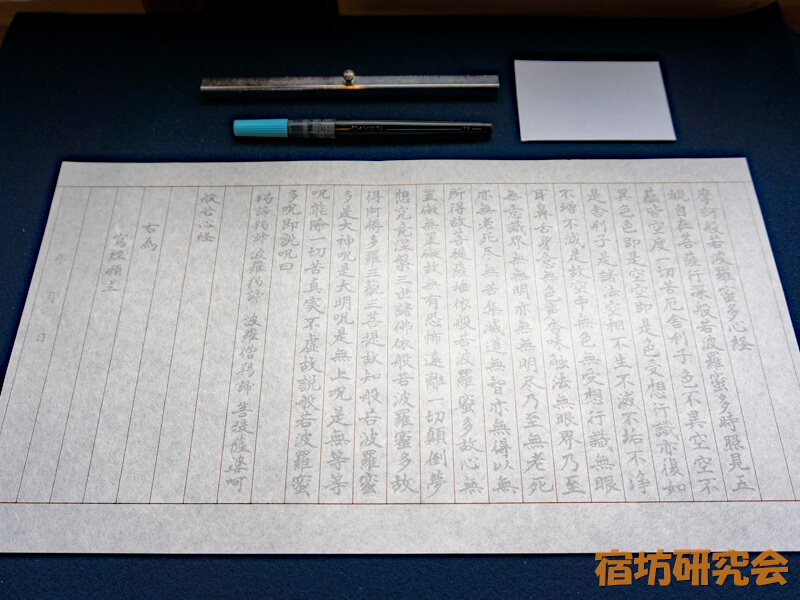 摩訶般若波羅蜜多心経
観自在菩薩行深般若波羅蜜多時照見五
蘊皆空度一切苦厄舎利子色不異空空不
異色色即是空空即是色受想行識亦復如
是舎利子是諸法空相不生不滅不垢不浄
不増不減是故空中無色無受想行識無眼
耳鼻舌身意無色声香味触法無眼界乃至
無意識界無無明亦無無明尽乃至無老死
亦無老死尽無苦集滅道無智亦無得以無
所得故菩提薩埵依般若波羅蜜多故心無
罣礙無罣礙故無有恐怖遠離一切顛倒夢
想究竟涅槃三世諸佛依般若波羅蜜多故
得阿耨多羅三藐三菩提故知般若波羅蜜
多是大神呪是大明呪是無上呪是無等等
呪能除一切苦真実不虚故説般若波羅蜜
多呪即説呪曰
羯諦羯諦 波羅羯諦 波羅僧羯諦 菩提薩婆訶
般若心経
右為
寫経願主
年 月 日
宿坊研究会